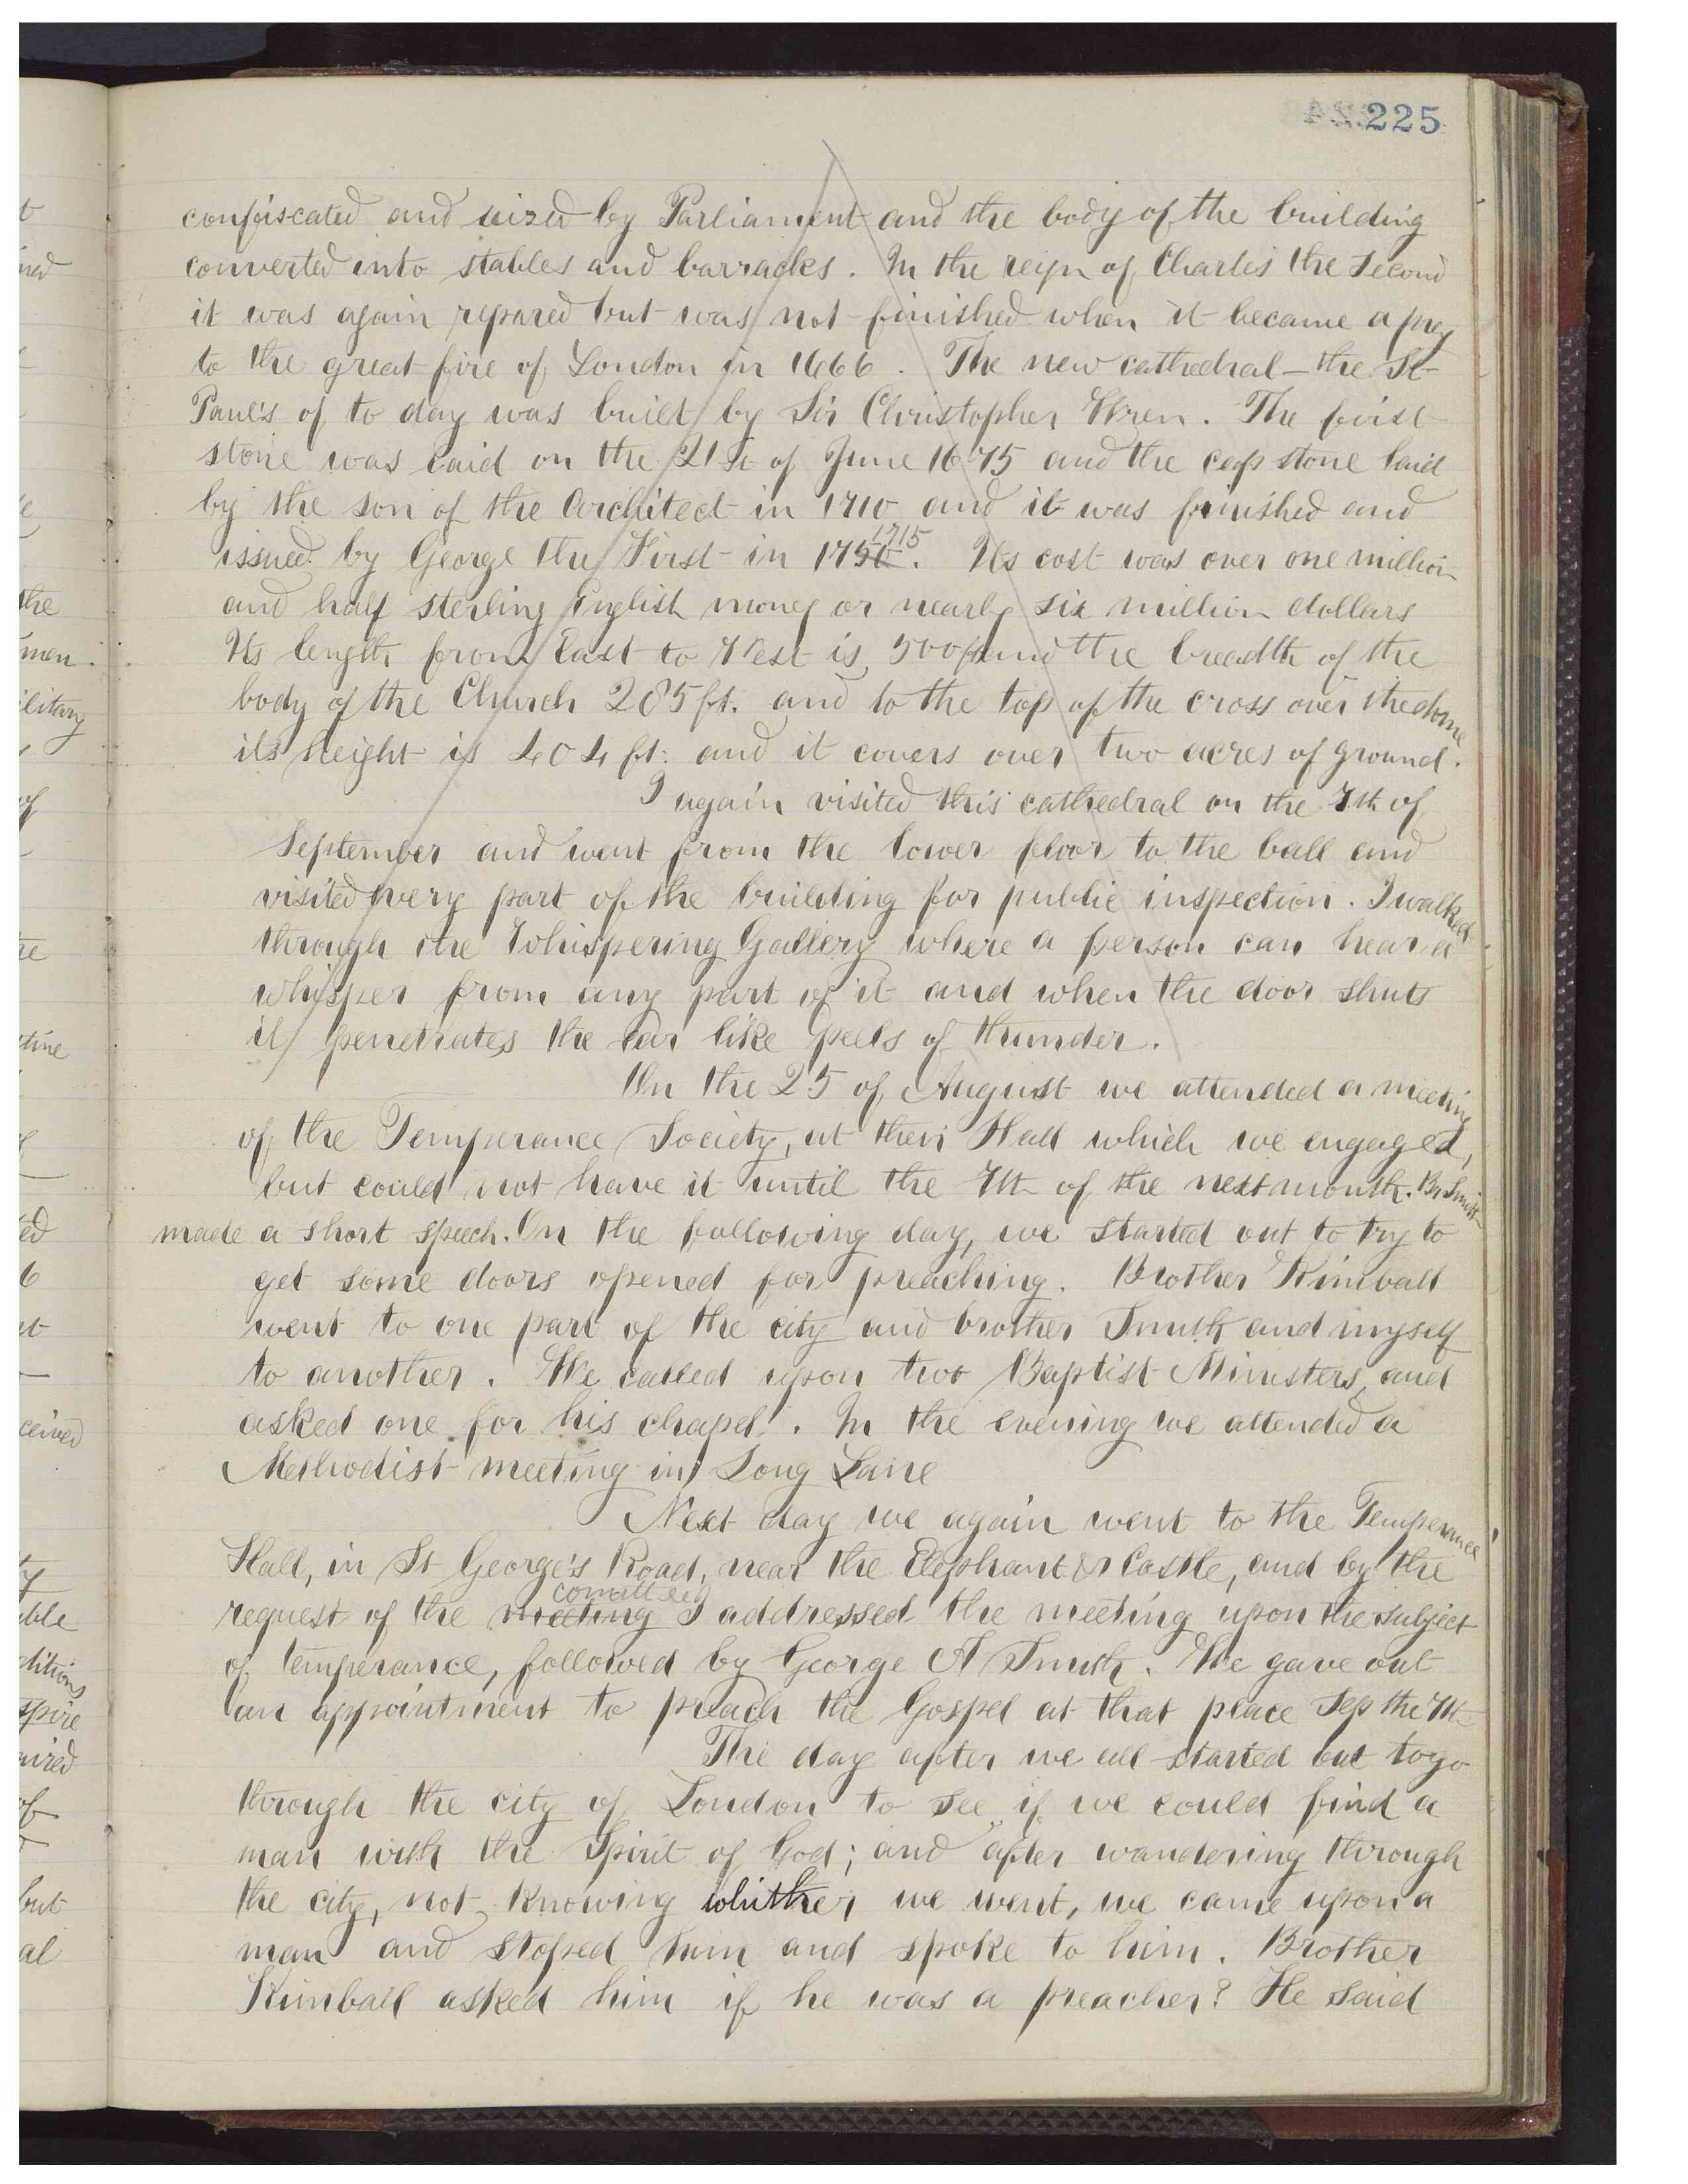 225
confiscated and seized by Parliament and the body of the building
converted into stables and barracks. In the reign of Charles the Second
it was again repared but was not finished when it became a prey
to the great fire of London in 1666. The new cathedral - the St
Paul's of to day was built by Sir Christopher Wren. The first
stone was laid on the 21st of June 1675 and the cap stone laid
by the son of the Architect in 1710 and it was finished and
1715
issued by George the First in . Its cost was over one million
and half sterling English money or nearly six million dollars
Its length from East to West is 500 ft and the breadth of the
body of the Church 285 ft. and to the top of the cross over the dome
its height is 404 ft. and it covers over two acres of ground.
I again visited this cathedral on the 7th of
September and went from the lower floor to the ball and
visited every part of the building for public inspection. I walked
through the Whispering Gallery where a person can hear a
whisper from any part of it and when the door shuts
it penetrates the ear like peels of thunder.
On the 25 of August we attended a meeting
of the Temperance Society, at their Hall which we engaged,
but could not have it until the 7th of the next month. Br Smith
made a short speech. On the following day, we started out to try to
get some doors opened for preaching. Brother Kimball
went to one part of the city and brother Smith and myself
to another. We called upon two Baptist Ministers, and
asked one for his chapel. In the evening we attended a
Methodist meeting in Long Lane
Next day we again went to the Temperance
Hall, in St George's Road, near the Elephant & Castle, and by the
comittee
request of the meeting I addressed the meeting upon the subject
of temperance, followed by George A Smith. We gave out
an appointment to preach the Gospel at that place Sep the 7th
The day after we all started out to go
through the city of London to see if we could find a
man with the Spirit of God; and after wandering through
the city, not knowing whither we went, we came upon a
man and stoped him and spoke to him. Brother
Kimball asked him if he was a preacher? He said